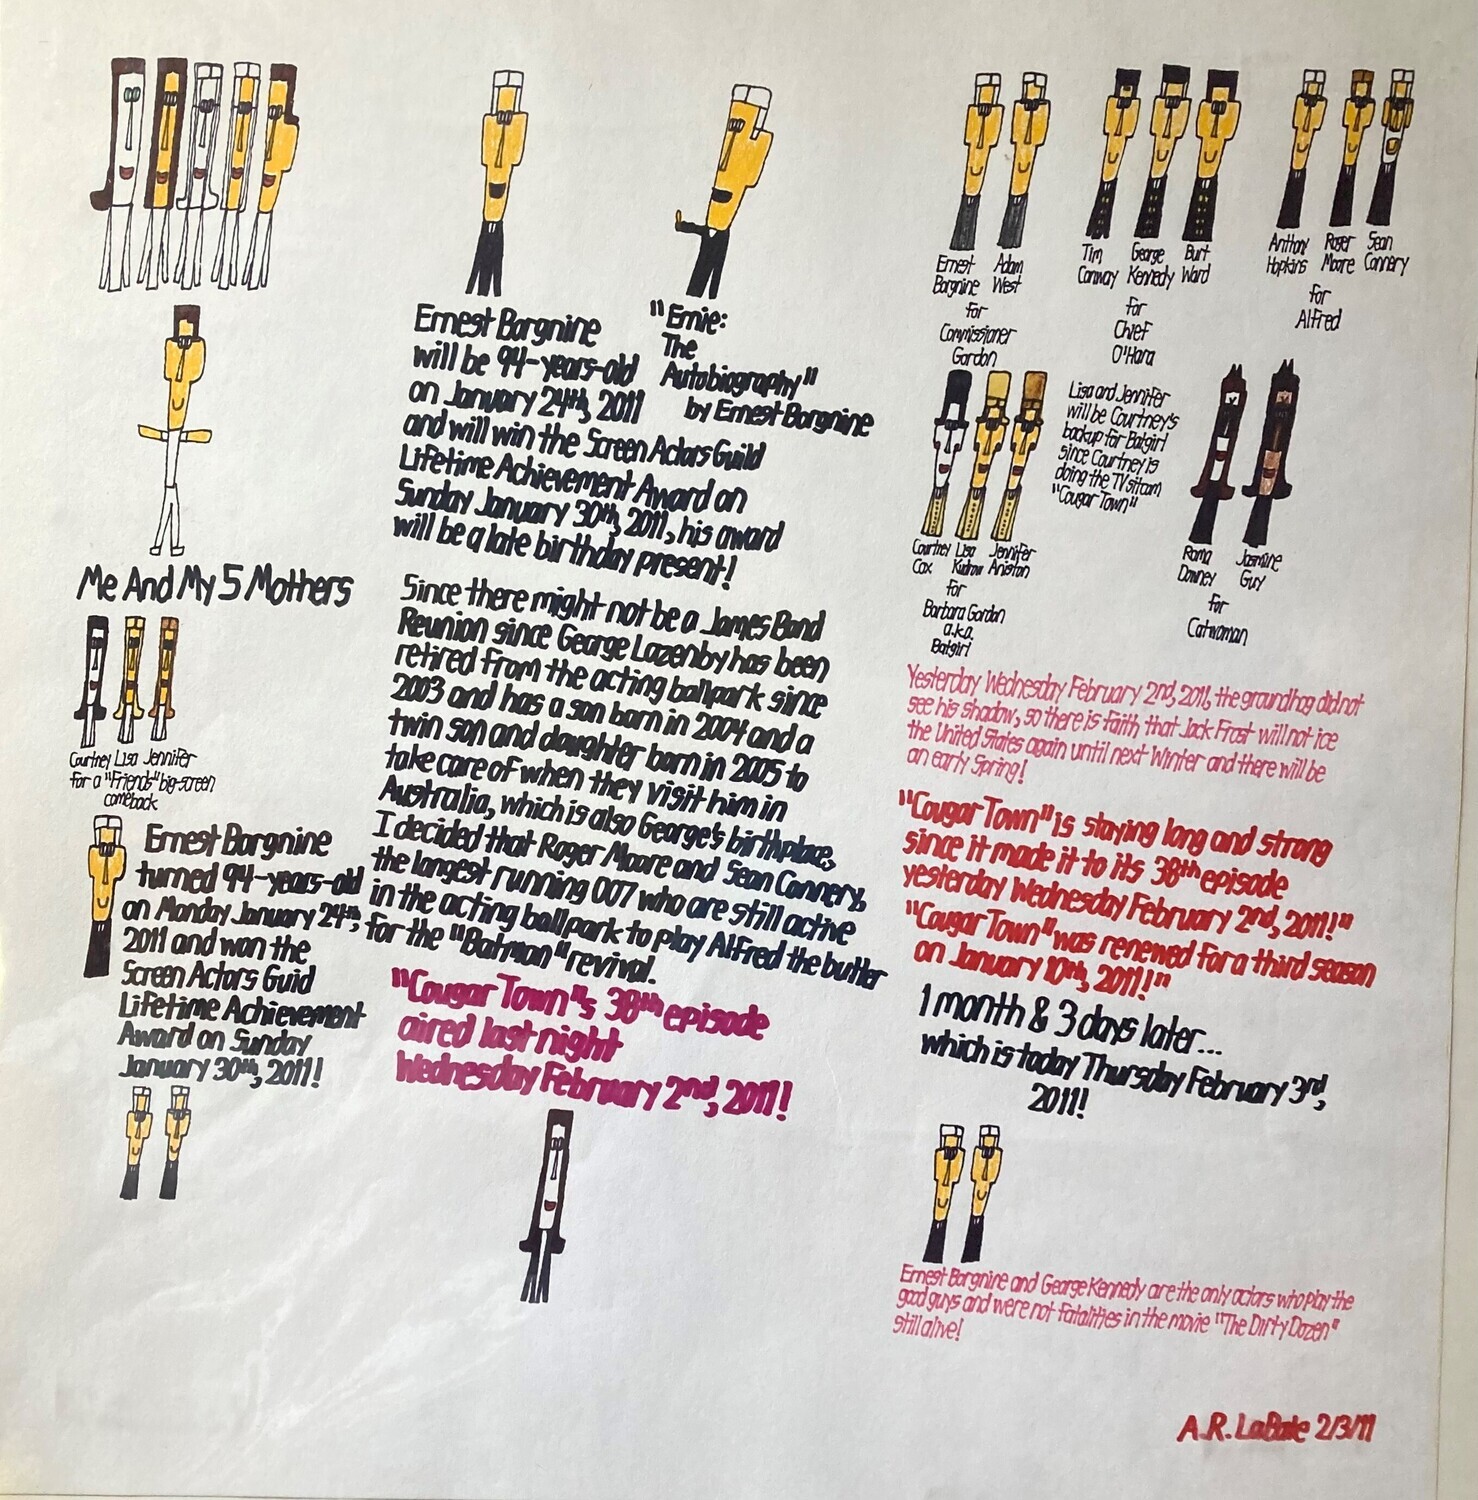 Me And My 5 Mothers
Courtney Lisa Jennifer
for a "Friends" big-screen
comeback
Ernest Borgnine
turned 94-years-old
on Monday January 24th,
2011 and won the
Screen Actors Guid
Lifetime Achievement
Award on Sunday
January 30th, 2011!
Ernest Borgnine
will be 94-years-old
on January 24th, 2011
and will win the Screen Actors Guild
Lifetime Achievement Award on
Sunday January 30th, 2011, his award
will be a late birthday present!
"Ernie:
The
Autobiography"
by Ernest Borgnine
Since there might not be a James Bond
Reunion since George Lazenby has been
retired from the acting ballpark since
2003 and has a son born in 2004 and a
twin son and daughter born in 2005 to
take care of when they visit him in
Australia, which is also George's birthplace,
I decided that Roger Moore and Sean Connery,
the longest running 007 who are still active
in the acting ballpark to play Alfred the butler
for the "Batman" revival.
"Cougar Town"s 38th episode
aired last night
Wednesday February 2nd, 2011!
Ernest
Borgnine
Adam
West
for
Commissioner
Gordon
Tim
Conway
George
Kennedy
Burt
Ward
for
Chief
O'Hara
Anthony
Hopkins
Roger
Moore
Sean
Connery
for
Alfred
Courtney
Cox
Lisa
Kudrow
Jennifer
Aniston
for
Barbara Gordon
a.k.a.
Batgirl
Lisa and Jennifer
will be Courtney's
backup for Batgirl
since Courtney is
doing the TV sitcom
"Cougar Town"
Roma
Downey
Jasmine
Guy
for
Catwoman
Yesterday Wednesday February 2nd, 2011, the groundhog did not
see his shadow, so there is faith that Jack Frost will not ice
the United States again until next Winter and there will be
an early Spring!
"Cougar Town" is staying long and strong
since it made it to its 38th episode
yesterday Wednesday February 2nd, 2011!"
"Cougar Town" was renewed for a third season
on January 10th, 2011!"
1 month & 3 days later...
which is today Thursday February 3rd,
2011!
Ernest Borgnine and George Kennedy are the only actors who play the
good guys and were not fatalities in the movie "The Dirty Dozen"
still alive!
A.R. LaBate 2/3/11